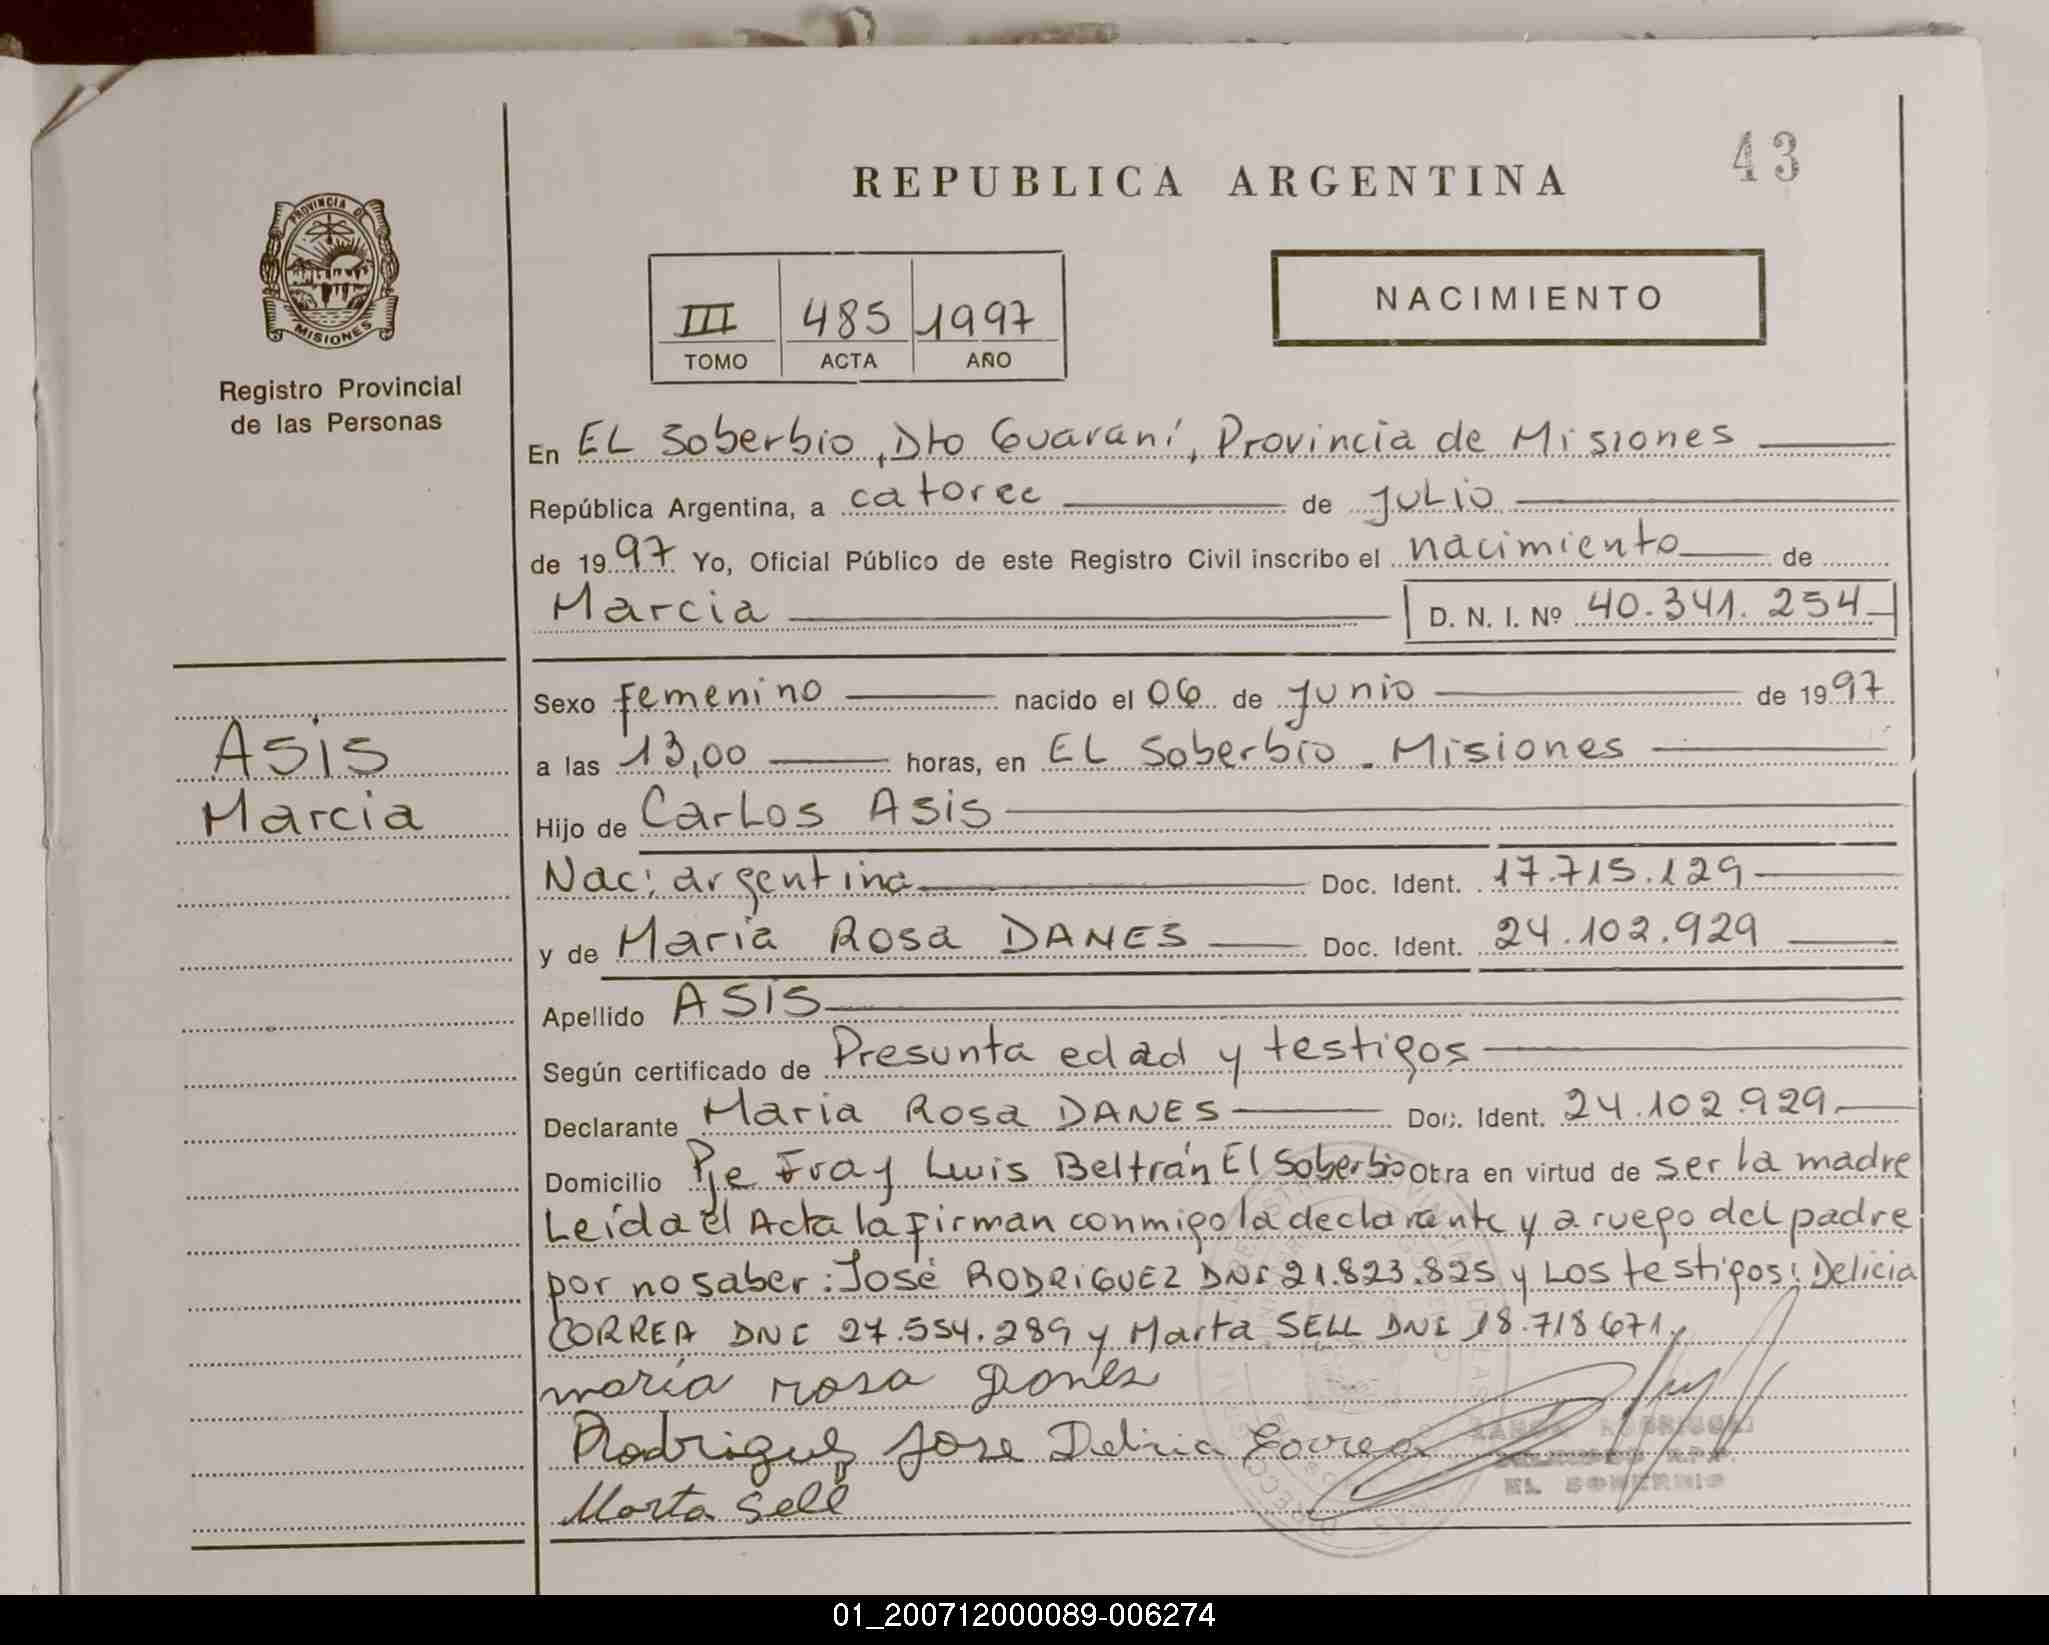 43
REPUBLICA ARGENTINA
PROVINCIA DE
MISIONES
Registro Provincial
de las Personas
III 485 1997
TOMO ACTA AÑO
NACIMIENTO
En EL Soberbio, Dto Guaraní, Provincia de Misiones
República Argentina, a catorce de JULIO
de 1997 Yo, Oficial Público de este Registro Civil inscribo el nacimiento de
Marcia D. N. I. Nº 40.341.254
Asis
Marcia
Sexo femenino nacido el 06 de junio de 1997
a las 13,00 horas, en EL Soberbio. Misiones
Hijo de Carlos Asis
Nac: argentina Doc. Ident. 17.715.129
y de Maria Rosa DANES Doc. Ident. 24.102.929
Apellido ASIS
Según certificado de Presunta edad y testigos
Declarante Maria Rosa DANES Doc. Ident. 24.102.929
Domicilio Pje Fray Luis Beltrán El Soberbio Obra en virtud de ser la madre
Leída el Acta la firman conmigo la declarante y a ruego del padre
por no saber: José RODRIGUEZ DNI 21.823.825 y Los testigos: Delicia
CORREA DNI 27.554.289 y Marta SELL DNI 18.718671.
maria rosa Danes
Rodriguez Jose Delicia Correa
Marta Sell
EL SOBERBIO
01_200712000089-006274